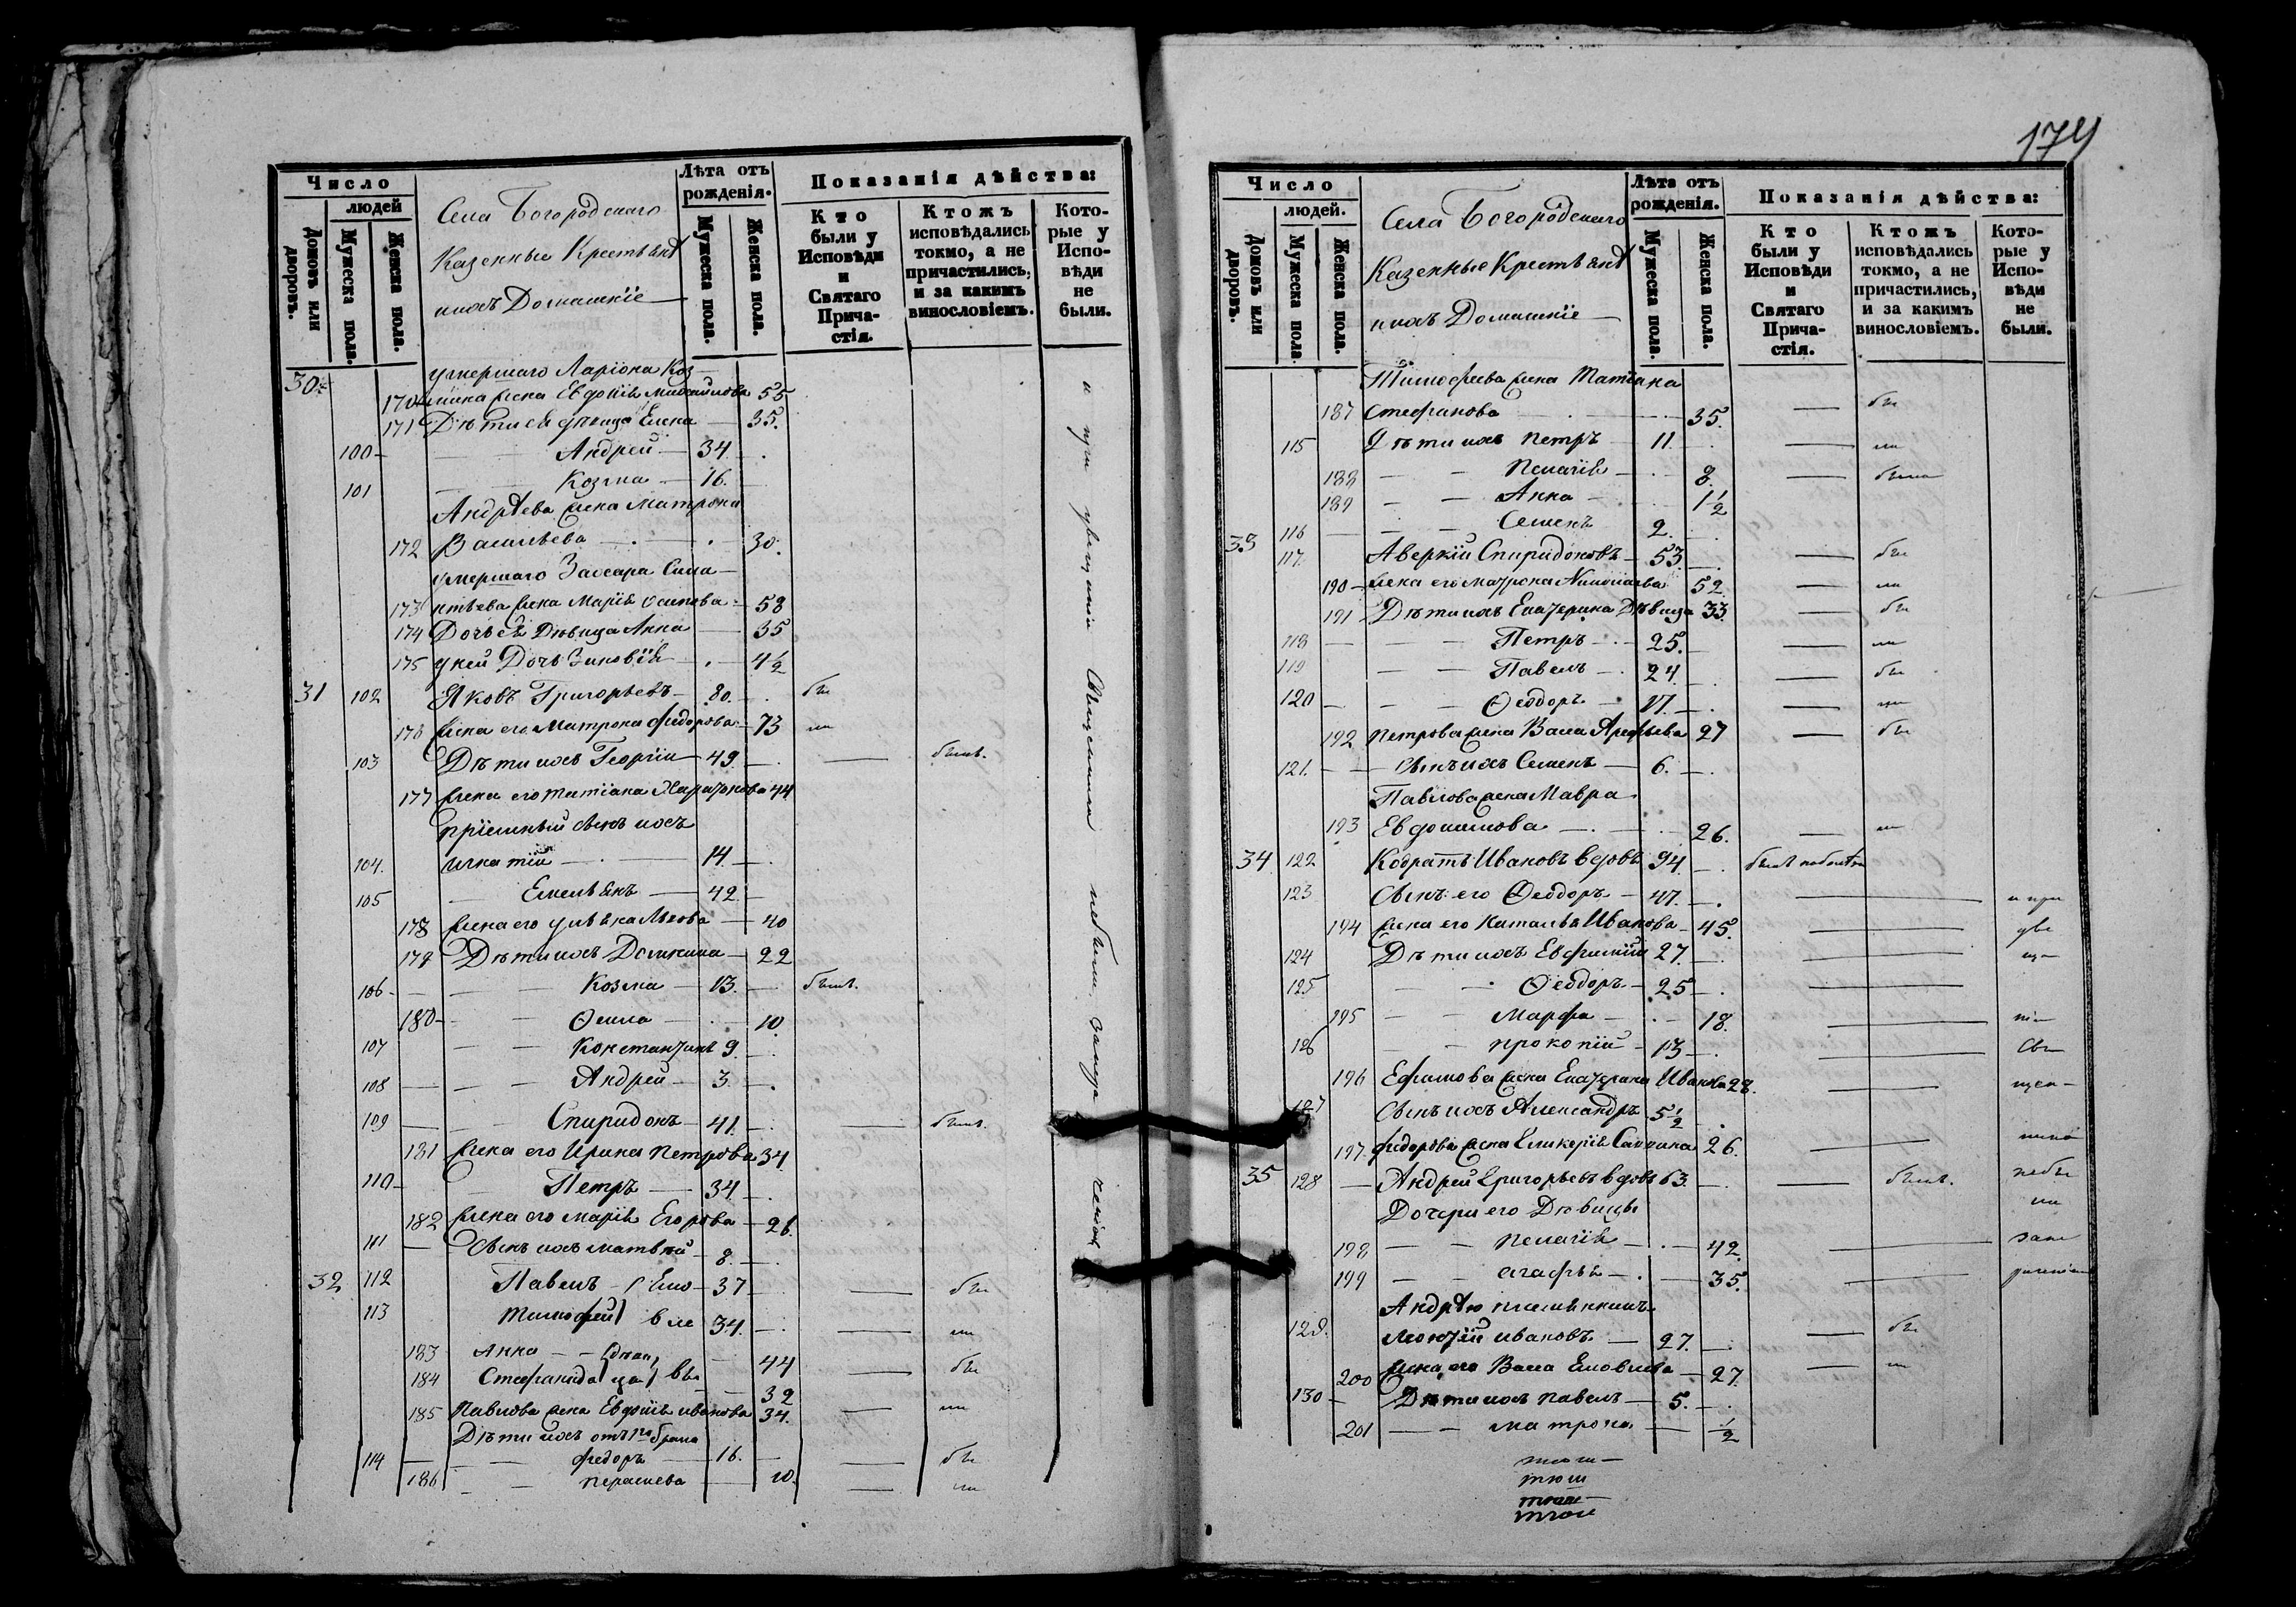 Число
людей
Домовъ или дворовъ.
Мужеска пола.
Женска пола.
Села Богородскаго
Казенные Крестьяне
и ихъ Домашнiе
Лѣта отъ рожденiя.
Мужеска пола.
Женска пола.
Показанiя дѣйства:
Кто были у Исповѣди и Святаго Причастiя.
Ктожъ исповѣдались токмо, а не причастились, и за какимъ винословiемъ.
Которые у Исповѣди не были.
30 умершаго Ларiона Коз
170 мина жена Евдокiя Михайлова 55
171 Дѣти ея дѣвица Елена 35.
100 Андрей 34
101 Козма 16.
Андрѣева жена Матрона
172 Васильева 30.
умершаго
173 жена Марiя Осипова 58
174 Дочь ея Дѣвица Анна 35
175 у ней Дочь Зиновiя 4 1/2
31 102 Яковъ Григорьевъ 80. бы
176 жена его Матрона Федорова 73 ли
103 Дѣти ихъ Георгiи 49. былъ.
177 жена его Татiана Харитонова 44
прiемный сынъ ихъ
104. Игнатiй 14.
105 Емельянъ 42
178 жена его Ульяна Львова 40
179 Дѣти ихъ Домника 22
106 Козма 13. былъ.
180 Ѳекла 10.
107 Константинъ 9.
108 Андрей 3.
109 Спиридонъ 41. былъ.
181 жена его Ирина Петрова 34
110 Петръ 34.
182 жена его Марiя Егорова 26.
111 Сынъ ихъ Матвѣй 8.
32 112 Павелъ 37 бы
113 Тимофей 34. ли
183 Анна 44 бы
184 Стефанида 32
185 Павлова жена Евдокiя Иванова 34. ли
Дѣти ихъ отъ 1го брака
114 Федоръ 16. бы
186 Парасковья 10. ли
и при увещанiи Священника небыли
174
Число
людей.
Домовъ или дворовъ.
Мужеска пола.
Женска пола.
Села Богородскаго
Казенные Крестьяне
и ихъ Домашнiе
Лѣта отъ рожденiя.
Мужеска пола.
Женска пола.
Показанiя дѣйства:
Кто были у Исповѣди и Святаго Причастiя.
Ктожъ исповѣдались токмо, а не причастились, и за какимъ винословiемъ.
Которые у Исповѣди не были.
Тимофеева жена Татiана
187 Стефанова 35. бы
115 Дѣти ихъ Петръ 11. ли
188 Пелагiя 8. была
189 Анна 1 1/2
116 Семенъ 2.
33 117. Аверкiй Спиридоновъ 53. бы
190 жена его Матрона Николаева 52. ли
191 Дѣти ихъ Екатерина Дѣвица 33. бы
118 Петръ 25. ли
119 Павелъ 24. бы
120 Ѳеодоръ 17. ли
192 Петрова жена Васса Арефьева 27 бы
121. Сынъ ихъ Семенъ 6.
Павлова жена Мавра
193 Евдокимова 26. ли
34 122 Кодратъ Ивановъ вдовъ 94
123 Сынъ его Ѳеодоръ 47. и при
194 жена его Наталья Иванова 45. уве
124 Дѣти ихъ Евфимiй 27. ща
125 Ѳеодоръ 25
195 Марфа 18. нiи
126 Прокопiй 13 Свя
196 Ефимова жена Екатерина Иванова 28. щен
127 Сынъ ихъ Александръ 5 1/2
197. Федорова жена Гликерiя Саввина 26. ника
35 128 Андрей Григорьевъ вдовъ 63. былъ. небы
Дочери его Дѣвицы ли
198 Пелагiя 42.
199 Агафья 35.
Андрѣю племянникъ
129. Леонтiй Ивановъ 27. бы
200 жена его Васса 27. ли
130 Дѣти ихъ Павелъ 5.
201 Матрона 1/2